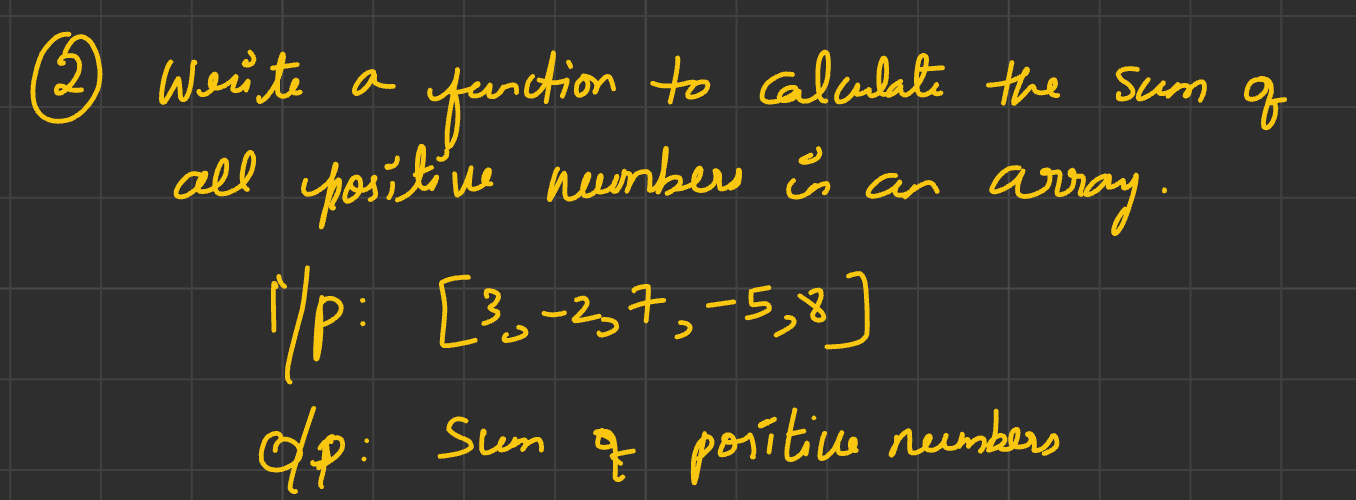 ② Write a function to calculate the sum of
all positive numbers in an array.
I/p: [3, -2, 7, -5, 8]
O/p: Sum of positive numbers